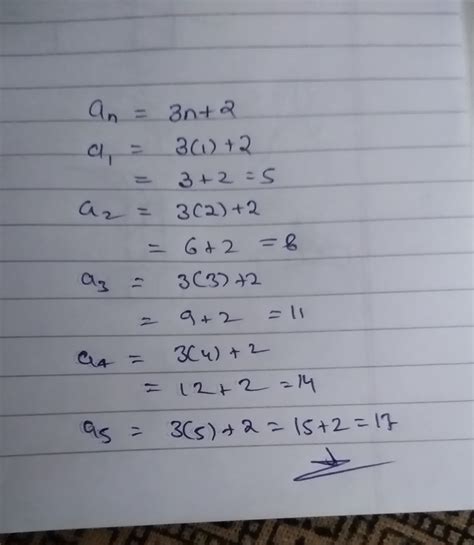 aₙ = 3n+2
a₁ = 3(1)+2
= 3+2 =5
a₂ = 3(2)+2
= 6+2 =8
a₃ = 3(3)+2
= 9+2 =11
a₄ = 3(4)+2
= 12+2 =14
a₅ = 3(5)+2 = 15+2 = 17